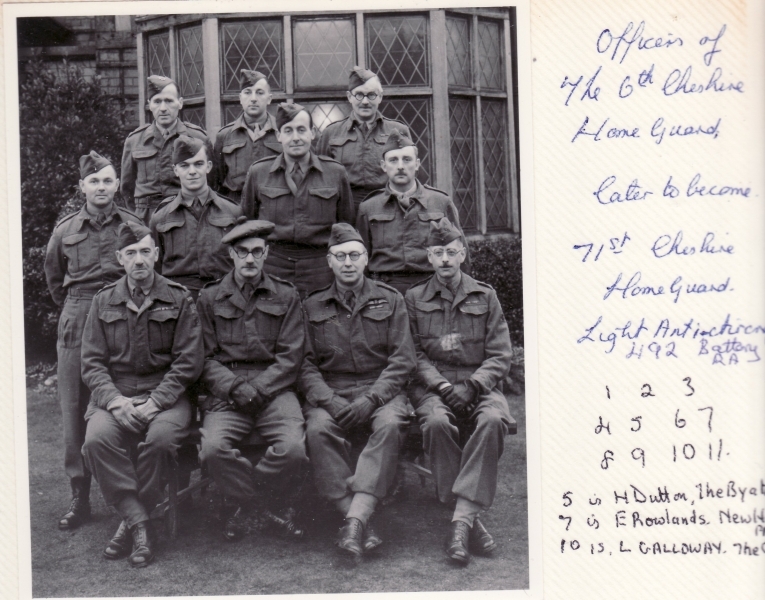 Officers of
The 6th Cheshire
Home Guard,
later to become.
71st Cheshire
Home Guard.
Light Anti-aircra
492 Battery
RA
1 2 3
4 5 6 7
8 9 10 11.
5 is H Dutton, The Byat
7 is E Rowlands. New
10 is. L GALLOWAY. The